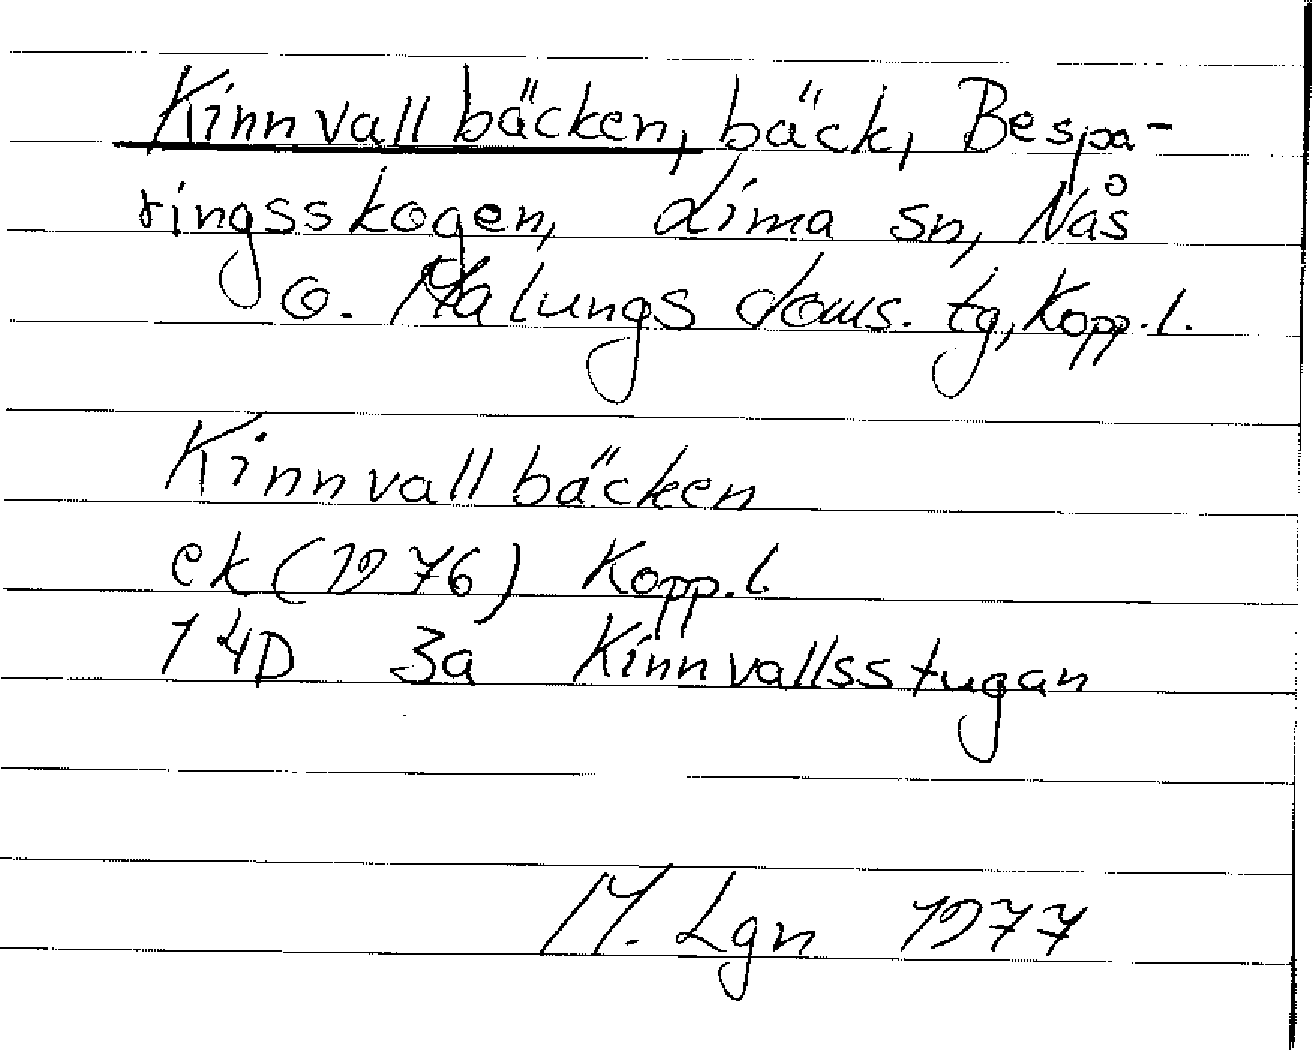 Kinnvallbäcken, bäck, Bespa-
ringsskogen, Lima sn, Nås
o. Malungs doms. tg, Kopp.l.
Kinnvallbäcken
ek (1976) Kopp.l
14D 3a Kinnvallsstugan
M. Lgn 1977